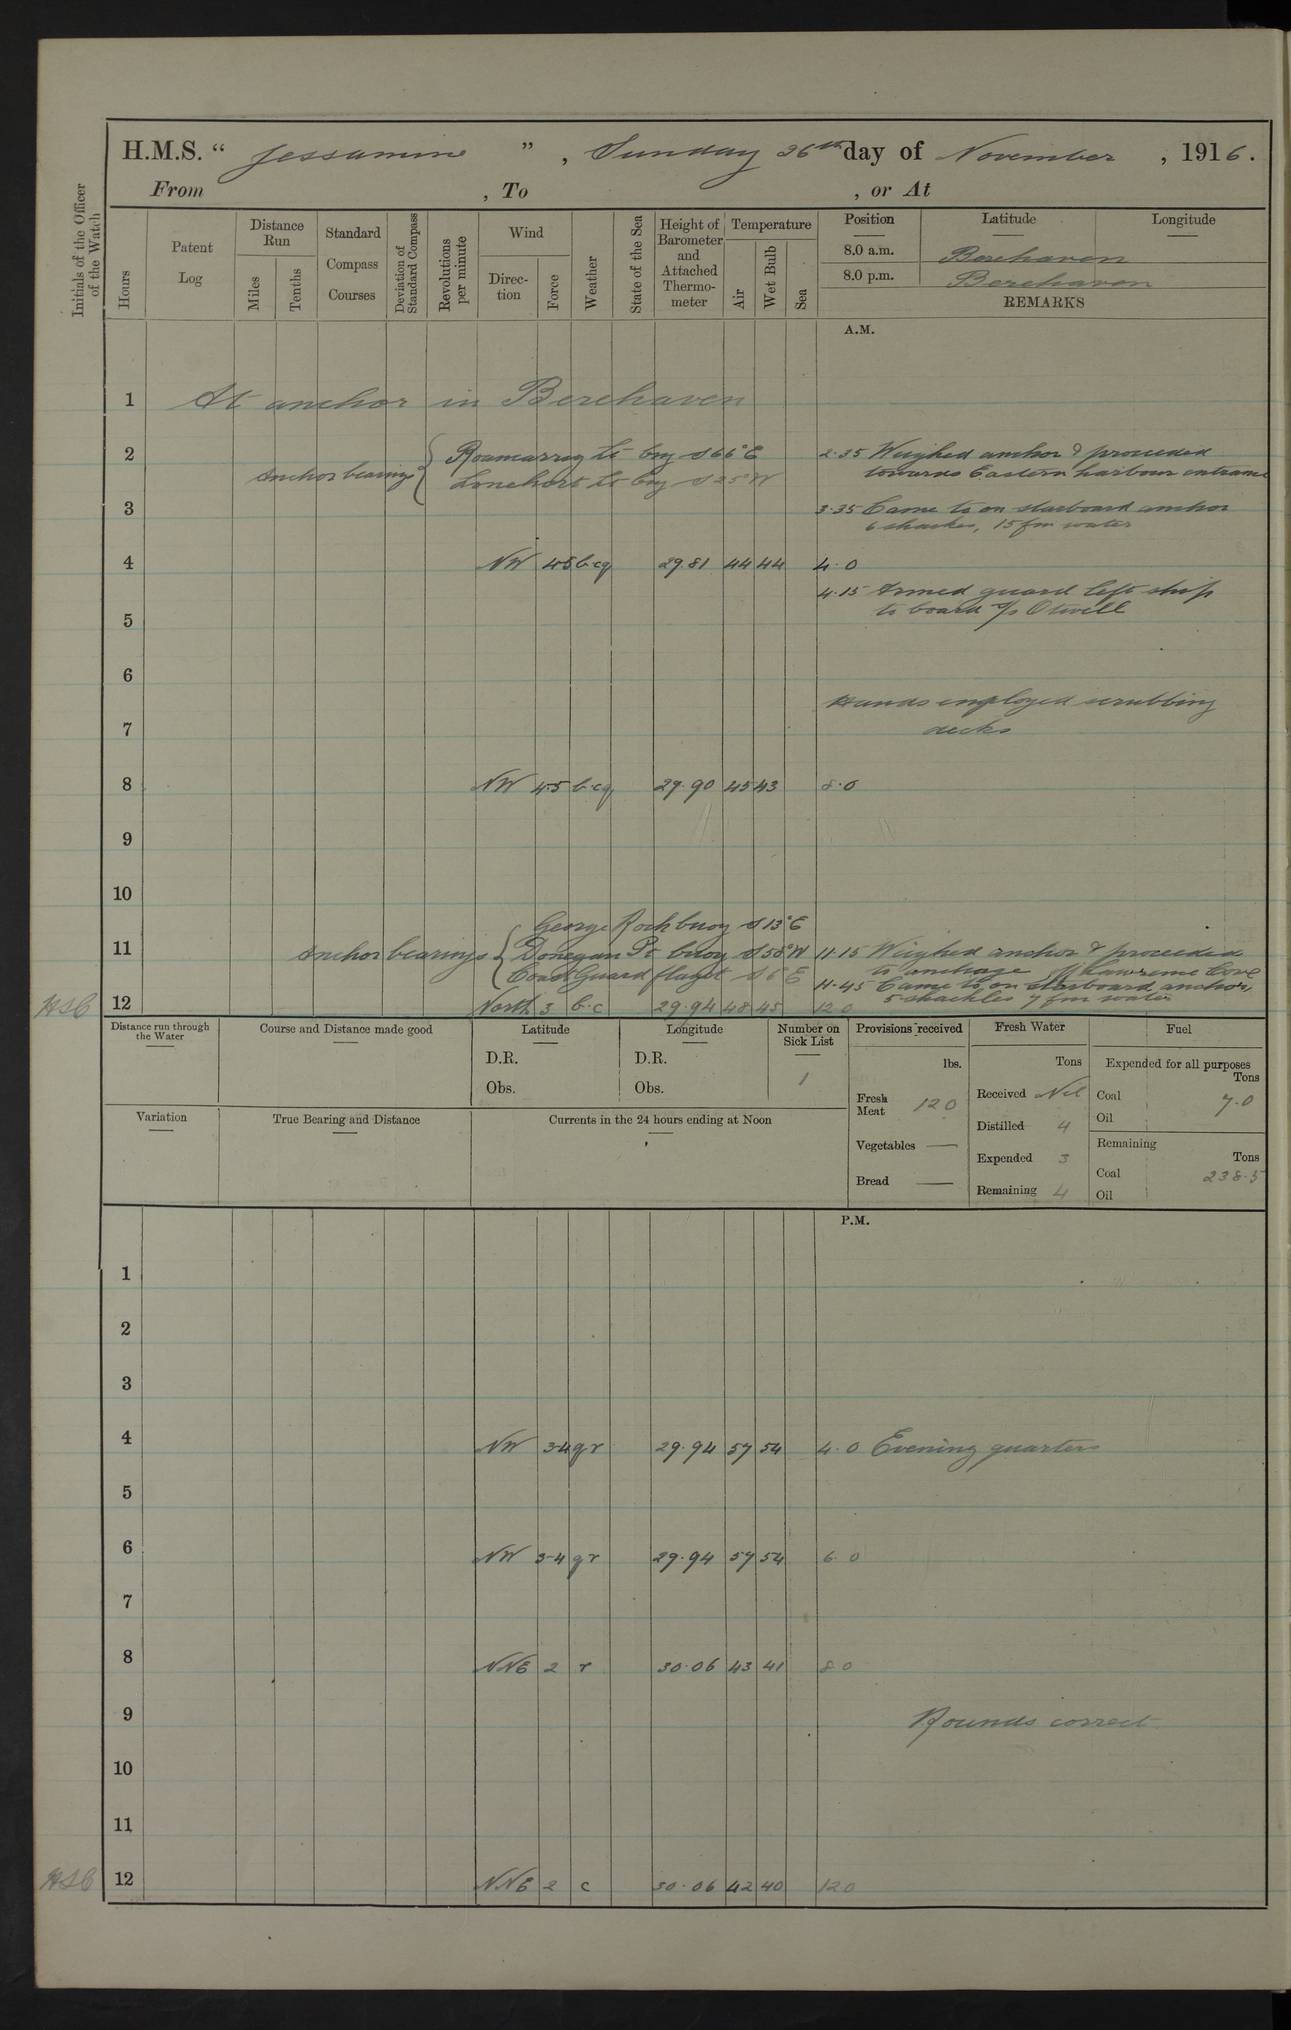 H.M.S. " Jessamine ", Sunday 26th day of November, 1916.
From , To , or At
Initials of the Officer of the Watch
Hours
Patent Log
Distance Run
Miles
Tenths
Standard Compass Courses
Deviation of Standard Compass
Revolutions per minute
Wind
Direction
Force
Weather
State of the Sea
Height of Barometer and Attached Thermometer
Temperature
Air
Wet Bulb
Sea
Position Latitude Longitude
8.0 a.m. Berehaven
8.0 p.m. Berehaven
REMARKS
A.M.
1 At anchor in Berehaven
2 Anchor bearings { Roancarrig Lt brg S66°E
Lonehort Lt brg S25°W
2.35 Weighed anchor & proceeded
towards Eastern harbour entrance
3 3.35 Came to on starboard anchor
6 shackles, 15 fm water
4 NW 4-5 b.c.q 29.81 44 44 4.0
4.15 Armed guard left ship
to board s/s Otwell
5
6
Hands employed scrubbing
decks
7
8 NW 4-5 b.c.q 29.90 45 43 8.0
9
10
11 Anchor bearings { George Rock buoy S13°E
Donegan Pt buoy S58°W
Coast Guard flagst S6°E
11.15 Weighed anchor & proceeded
to anchorage off Lawrence Cove
11.45 Came to on starboard anchor,
5 shackles 7 fm water
HSC 12 North 3 b.c 29.94 48 45 12.0
Distance run through the Water
Course and Distance made good
Latitude
D.R.
Obs.
Longitude
D.R.
Obs.
Number on Sick List
1
Provisions received
lbs.
Fresh Meat 120
Vegetables —
Bread —
Fresh Water
Tons
Received Nil
Distilled 4
Expended 3
Remaining 4
Fuel
Expended for all purposes
Tons
Coal 7.0
Oil
Remaining
Tons
Coal 238.5
Oil
Variation
True Bearing and Distance
Currents in the 24 hours ending at Noon
P.M.
1
2
3
4 NW 3-4 g r 29.94 57 54 4.0 Evening quarters
5
6 NW 3-4 g r 29.94 57 54 6.0
7
8 NNE 2 r 30.06 43 41 8.0
9 Rounds correct
10
11
HSC 12 NNE 2 c 30.06 42 40 12.0